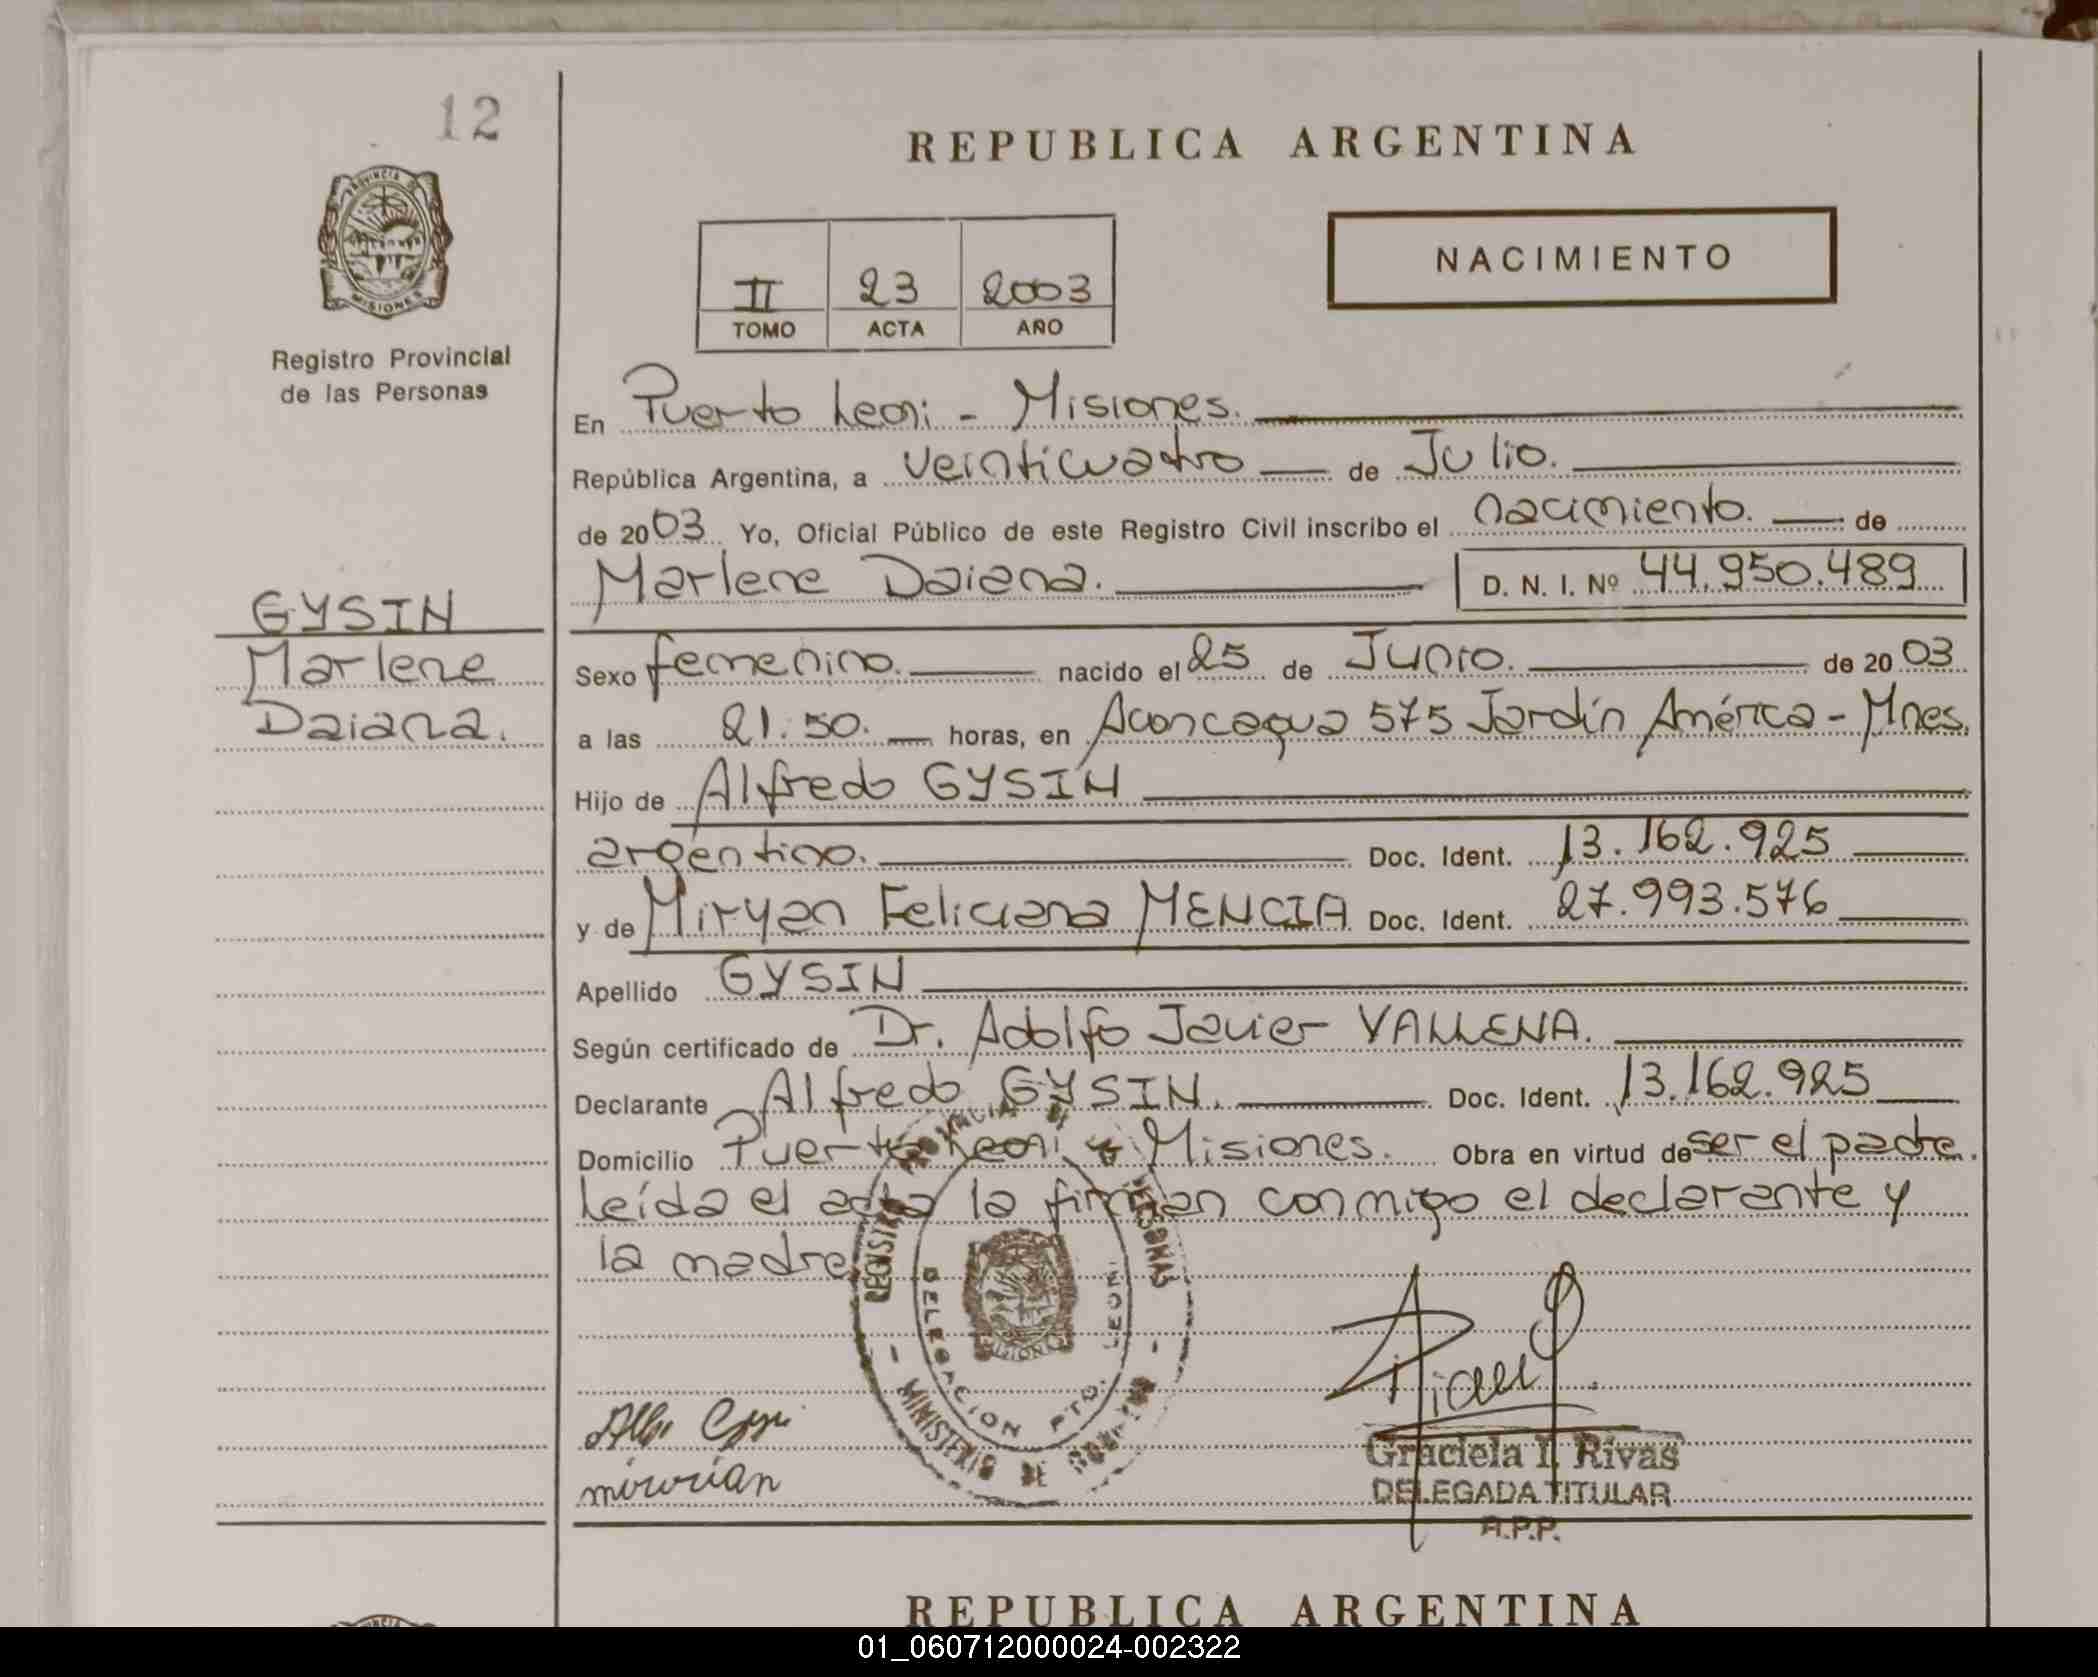 12
PROVINCIA DE
MISIONES
Registro Provincial
de las Personas
GYSIN
Marlene
Daiana.
REPUBLICA ARGENTINA
NACIMIENTO
II 23 2003
TOMO ACTA AÑO
En Puerto Leoni - Misiones.
República Argentina, a veinticuatro de Julio.
de 2003 Yo, Oficial Público de este Registro Civil inscribo el nacimiento. de
Marlene Daiana. D. N. I. Nº 44.950.489
Sexo femenino. nacido el 25 de Junio. de 2003
a las 21.50. horas, en Aconcagua 575 Jardín América - Mnes.
Hijo de Alfredo GYSIN
argentino. Doc. Ident. 13.162.925
y de Miryan Feliciana MENCIA Doc. Ident. 27.993.576
Apellido GYSIN
Según certificado de Dr. Adolfo Javier VALLENA.
Declarante Alfredo GYSIN. Doc. Ident. 13.162.925
Domicilio Puerto Leoni - Misiones. Obra en virtud de ser el padre.
Leída el acta la firman conmigo el declarante y
la madre
REGISTRO PROVINCIAL DE PERSONAS
DELEGACION PTO. LEONI
MISIONES
- MINISTERIO DE GOBIERNO -
Graciela I. Rivas
DELEGADA TITULAR
R.P.P.
REPUBLICA ARGENTINA
01_060712000024-002322